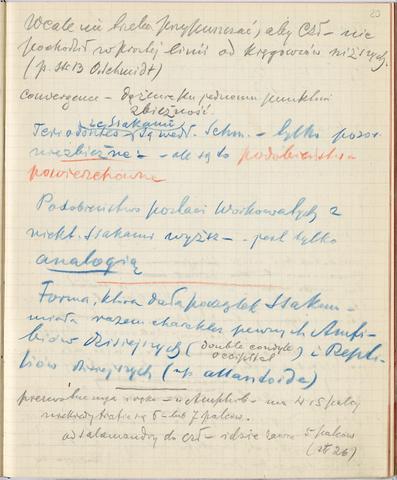 20
Wcale nie trzeba przypuszczać, aby Czł- nie
pochodził w prostej linii od kręgowców niższych.
(p. str 13 O. Schmidt)
convergence - dążenie ku jednemu punktowi
zbieżność.
ze ssakami
Teriodontes są wedł. Schm. - tylko pozor.
zbieżne - ale są to podobieństwa
powierzchowne
Podobieństwo postaci workowatych z
niekt. ssakami wyższ - jest tylko
analogią
Forma, która dała początek ssakom -
miała razem charakter pewnych Amfi-
biów dzisiejszych (double condyle
occipital) i Repti-
liów dzisiejszych (np allantoida)
u Amphib - ma 4 i 5 palcy
niekiedy trafia się 6 - lub 7 palców.
od salamandry do czł - idzie zawsze 5 palców
(str 26)